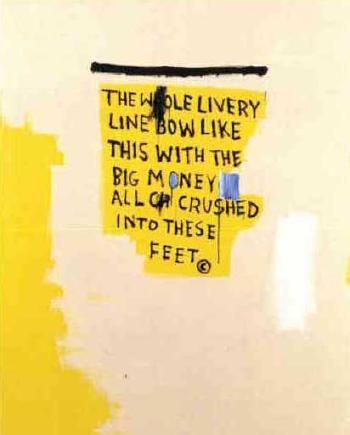 THE WHOLE LIVERY
LINE BOW LIKE
THIS WITH THE
BIG MONEY
ALL CRUSHED
INTO THESE
FEET ©